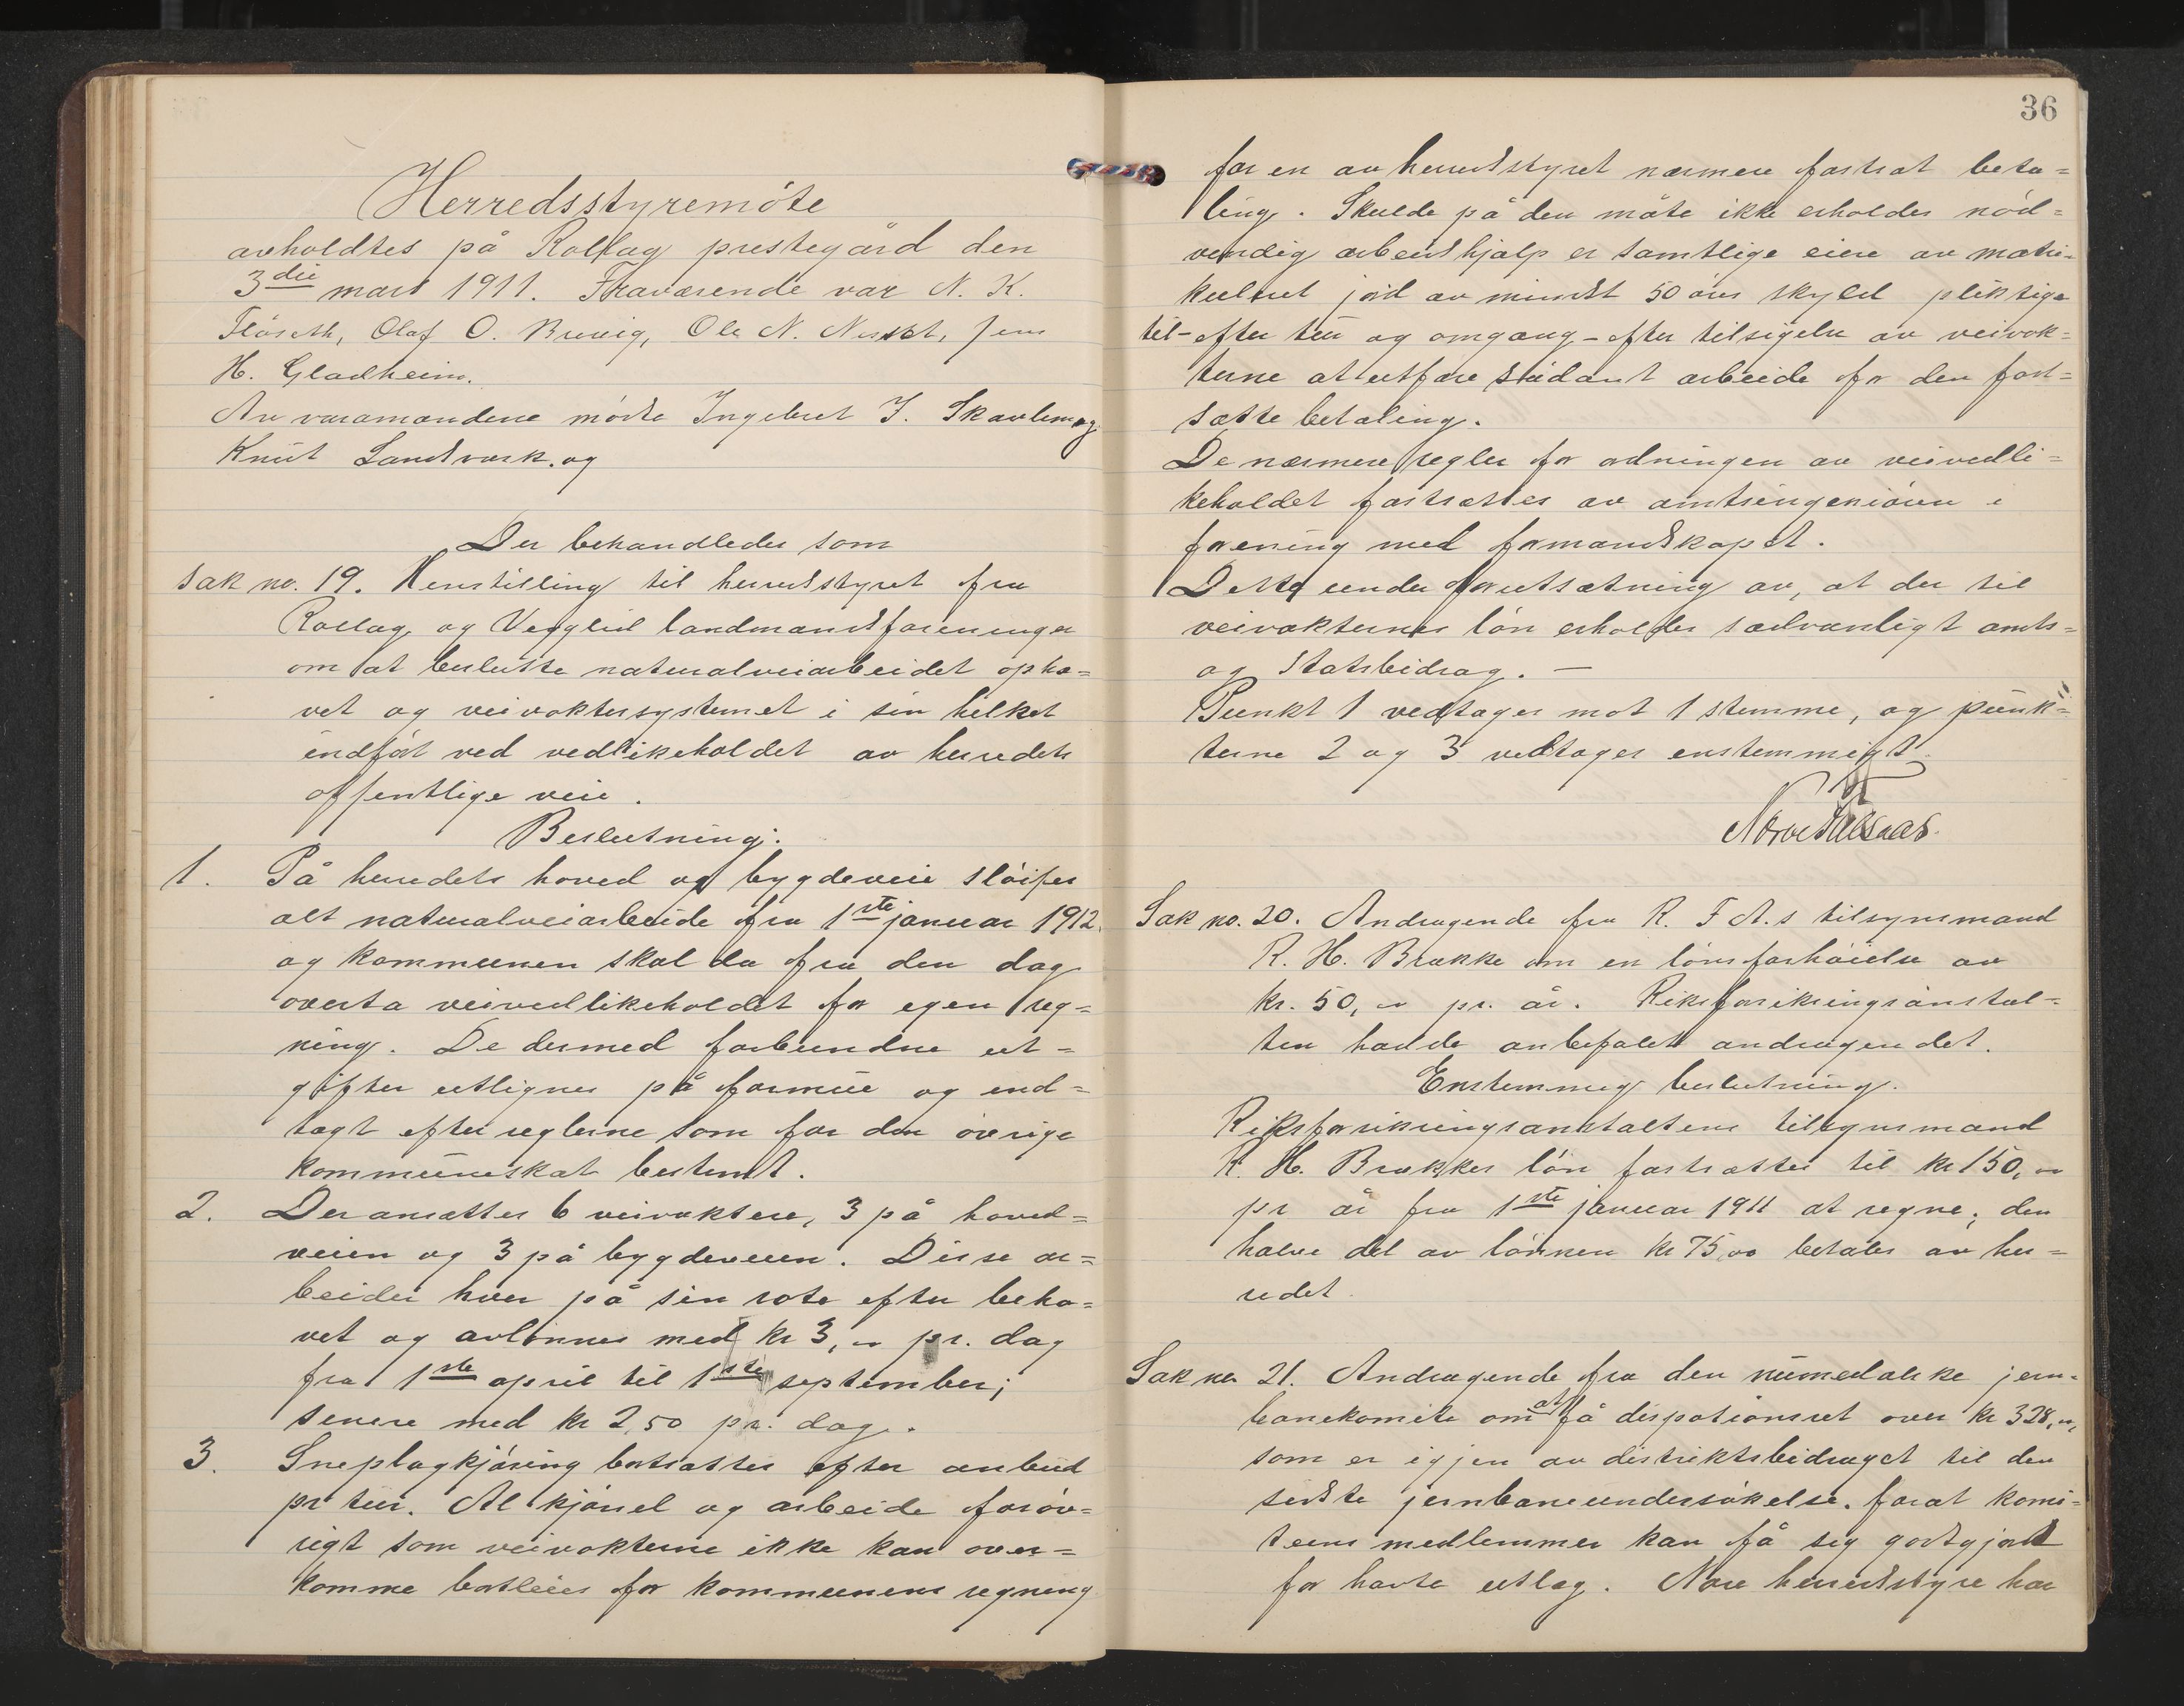 Herredsstyremöte
avholdtes på Rollag prestegård den
3die mars 1911. Fraværende var N. K.
Flåseth, Olaf O. Bruvig, Ole N. Jens
H. Gladheim.
Av varamændene mötte Ingebret I. Skavlem og
Knut Landverk. og
Der behandledes som
Sak no. 19. Henstilling til herredsstyret fra
Rollag og Veggli landmandsforeninger
om at beslutte naturalveiarbeidet ophæ=
vet og veivoktersystemet i sin helhet
indfört ved vedlikeholdet av herredets
offentlige veie.
Beslutning:
1. På herredets hoved og bygdeveie slöifes
alt naturalveiarbeide fra 1ste januar 1912.
og kommunen skal da fra den dag
overta veivedlikeholdet for egen reg=
ning. De dermed forbundne ut=
gifter utlignes på formue og ind=
tægt efter reglerne som for den övrige
kommuneskat bestemt.
2. Der ansættes 6 veivoktere, 3 på hoved=
veien og 3 på bygdeveien. Disse ar=
beider hver på sin rote efter beho=
vet og avlönnes med kr 3,00 pr. dag
fra 1ste april til 1ste september;
senere med kr 2,50 pr. dag.
3. Sneplogkjöring bortsættes efter anbud
pr tur. Al kjörsel og arbeide foröv=
rigt som veivokterne ikke kan over=
komme bortleies for kommunens regning
36
for en av herredsstyret nærmere fastsat beta=
ling. Skulde på den måte ikke erholdes nöd=
vendig arbeidshjælp er samtlige eiere av matri=
kuleret jord av mindst 50 öres skyld pliktige
til - efter tur og omgang - efter tilsigelse av veivok=
terne at utföre sådant arbeide for den fast=
satte betaling.
De nærmere regler for ordningen av veivedli=
keholdet fastsættes av amtsingeniören i
forening med formandskapet.
Dette under forutsætning av, at der til
veivokternes lön erholdes sædvanligt amts=
og Statsbidrag. —
Punkt 1 vedtages mot 1 stemme, og punk=
terne 2 og 3 vedtages enstemmigt.
Sak no. 20. Andragende fra R. F A.s tilsynsmand
R. H. Brække om en lönsforhöielse av
kr. 50,00 pr. år. Riksforsikringsanstal=
ten havde anbefalet andragendet.
Enstemmig beslutning.
Riksforsikringsanstaltens tilsynsmand
R. H. Brækkes lön fastsættes til kr 150,00
pr år fra 1ste januar 1911 at regne; den
halve del av lönnen kr 75,00 betales av her=
redet.
Sak no 21. Andragende fra den numedalske jern=
banekomite om at få dispotionsret over kr 328,00,
som er igjen av distriktsbidraget til den
sidste jernbaneundersökelse, forat komi=
teens medlemmer kan få sig godtgjort
for havte utlæg. Nore herredsstyre har